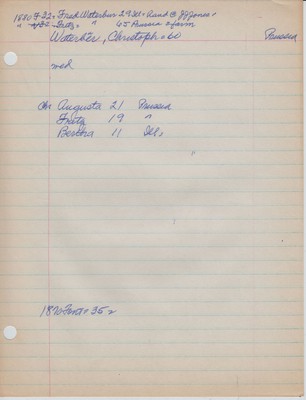 1880 F 22 Fred Waterbur 29 Ill Rand B JJ Jones
" " Fritz " 45 Prussia farm
Waterbür, Christoph 60 Prussia
wid
ch Augusta 21 Prussia
Fritz 19 "
Bertha 11 Ill,
"
1870 Font 35